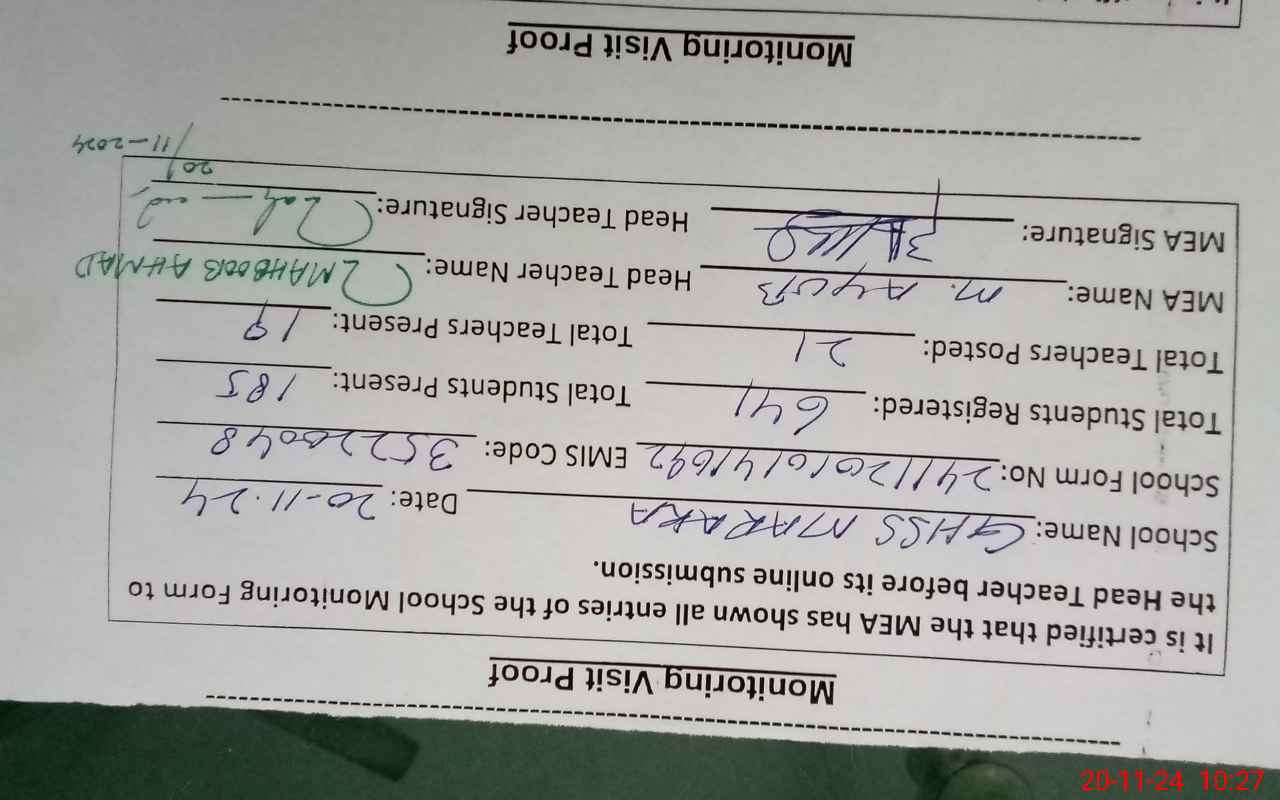 Monitoring Visit Proof
It is certified that the MEA has shown all entries of the School Monitoring Form to
the Head Teacher before its online submission.
School Name: GHSS MARAKA Date: 20-11-24
School Form No: 24112016141692 EMIS Code: 35220048
Total Students Registered: 641 Total Students Present: 185
Total Teachers Posted: 21 Total Teachers Present: 19
MEA Name: M. AYUB Head Teacher Name: MAHBOOB AHMAD
MEA Signature: Head Teacher Signature:
20/11-2024
Monitoring Visit Proof
20-11-24 10:27